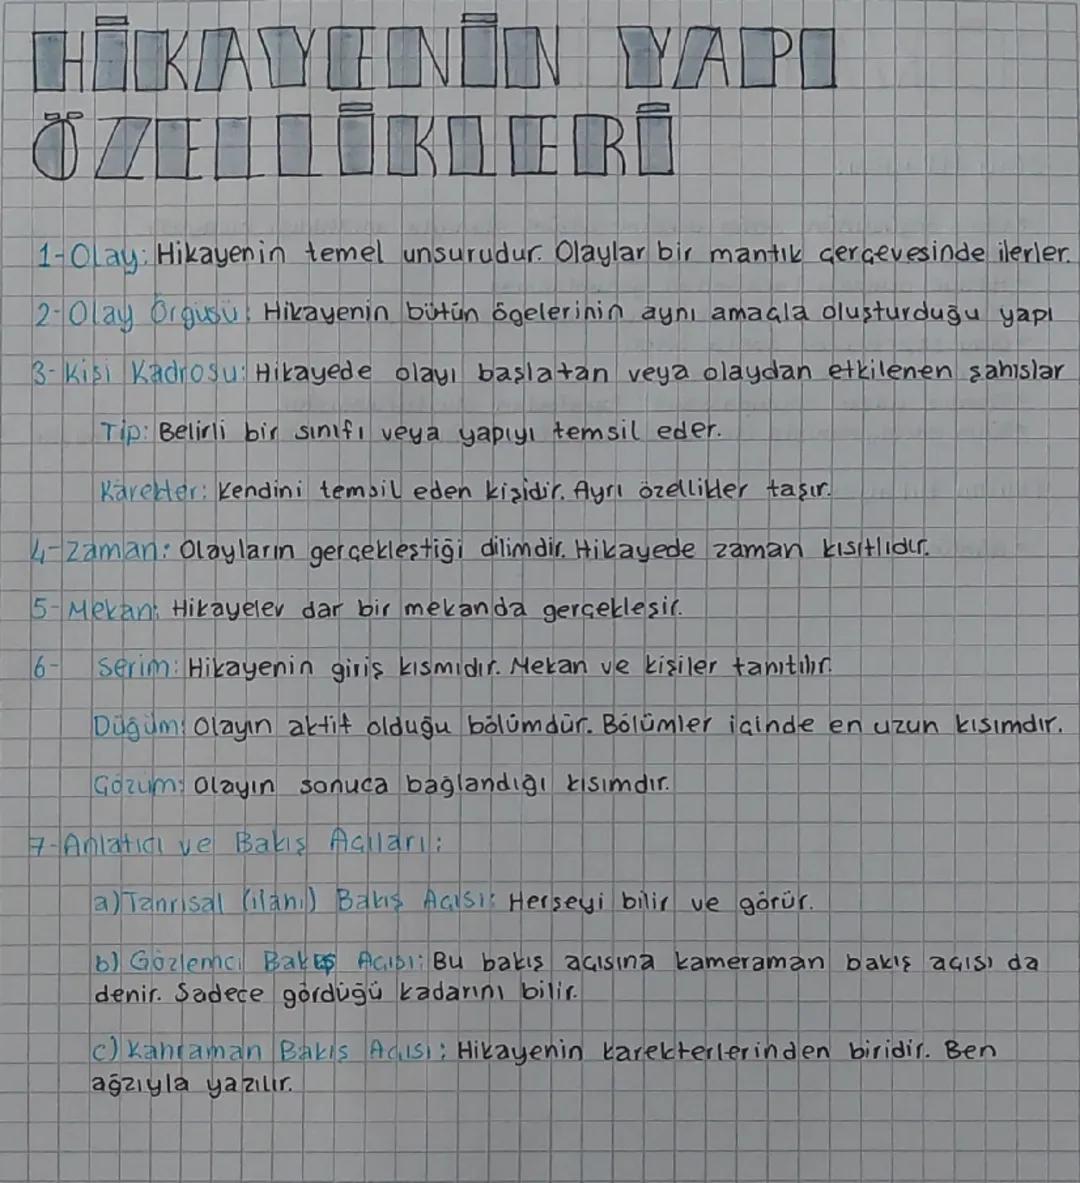 HİKAYENİN YAPI
ÖZELLİKLERİ
1-Olay: Hikayenin temel unsurudur. Olaylar bir mantık çerçevesinde ilerler.
2-Olay Örgüsü: Hikayenin bütün ögelerinin aynı amaçla oluşturduğu yapı
3-Kişi Kadrosu: Hikayede olayı başlatan veya olaydan etkilenen şahıslar
Tip: Belirli bir sınıfı veya yapıyı temsil eder.
Karekter: Kendini temsil eden kişidir. Ayrı özellikler taşır.
4-Zaman: Olayların gerçekleştiği dilimdir. Hikayede zaman kısıtlıdır.
5-Mekan: Hikayeler dar bir mekanda gerçekleşir.
6- Serim: Hikayenin giriş kısmıdır. Mekan ve kişiler tanıtılır.
Düğüm: Olayın aktif olduğu bölümdür. Bölümler içinde en uzun kısımdır.
Çözüm: Olayın sonuca bağlandığı kısımdır.
7-Anlatıcı ve Bakış Açıları:
a) Tanrısal (ilahi) Bakış Açısı: Herşeyi bilir ve görür.
b) Gözlemci Bakış Açısı: Bu bakış açısına kameraman bakış açısı da
denir. Sadece gördüğü kadarını bilir.
c) Kahraman Bakış Açısı: Hikayenin karekterlerinden biridir. Ben
ağzıyla yazılır.